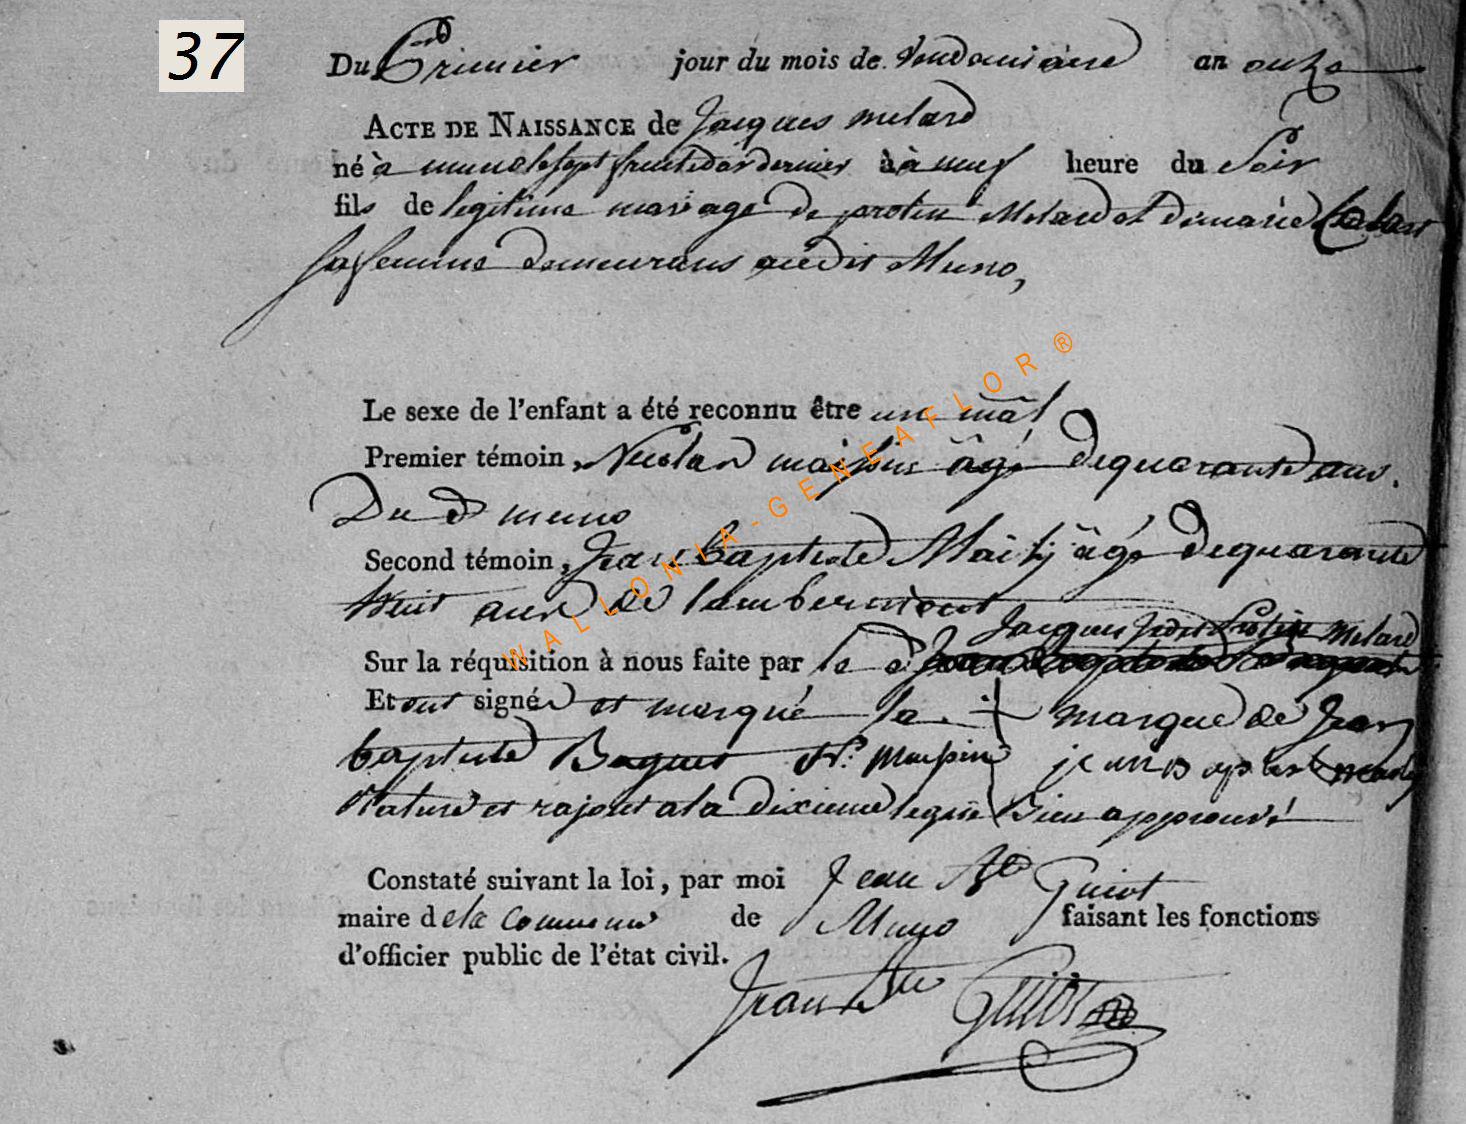 37
Du Primier jour du mois de Vendemiaire an onze
ACTE DE NAISSANCE de Jacques melard
né à muno le sept fructidor dernier à à neuf heure du Soir
fils de legitime mariage de protin Melard et de marie
sa femme demeurans audit Muno,
Le sexe de l'enfant a été reconnu être un mâl
Premier témoin, Nicolas maipin âgé de quarante ans.
Du d muno
Second témoin, Jean baptiste Maily âgé de quarante
huit ans de lambermont
Jacques melard
Sur la réquisition à nous faite par le d
Et ont signé et marqué la + marque de Jean
baptiste Baquet N. Maupin jean Baptiste
Rature et rajout a la dixieme legne Bien approuvé
Constaté suivant la loi, par moi Jean Bte Guiot
maire de la Commune de Muno faisant les fonctions
d'officier public de l'état civil.
Jean Bte Guiot
WALLONIA-GENEAFLOR®